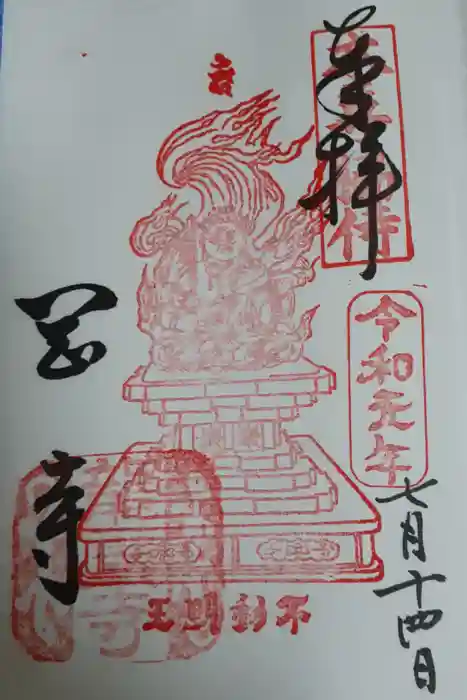 奉拝
令和元年
七月十四日
不動明王
岡寺